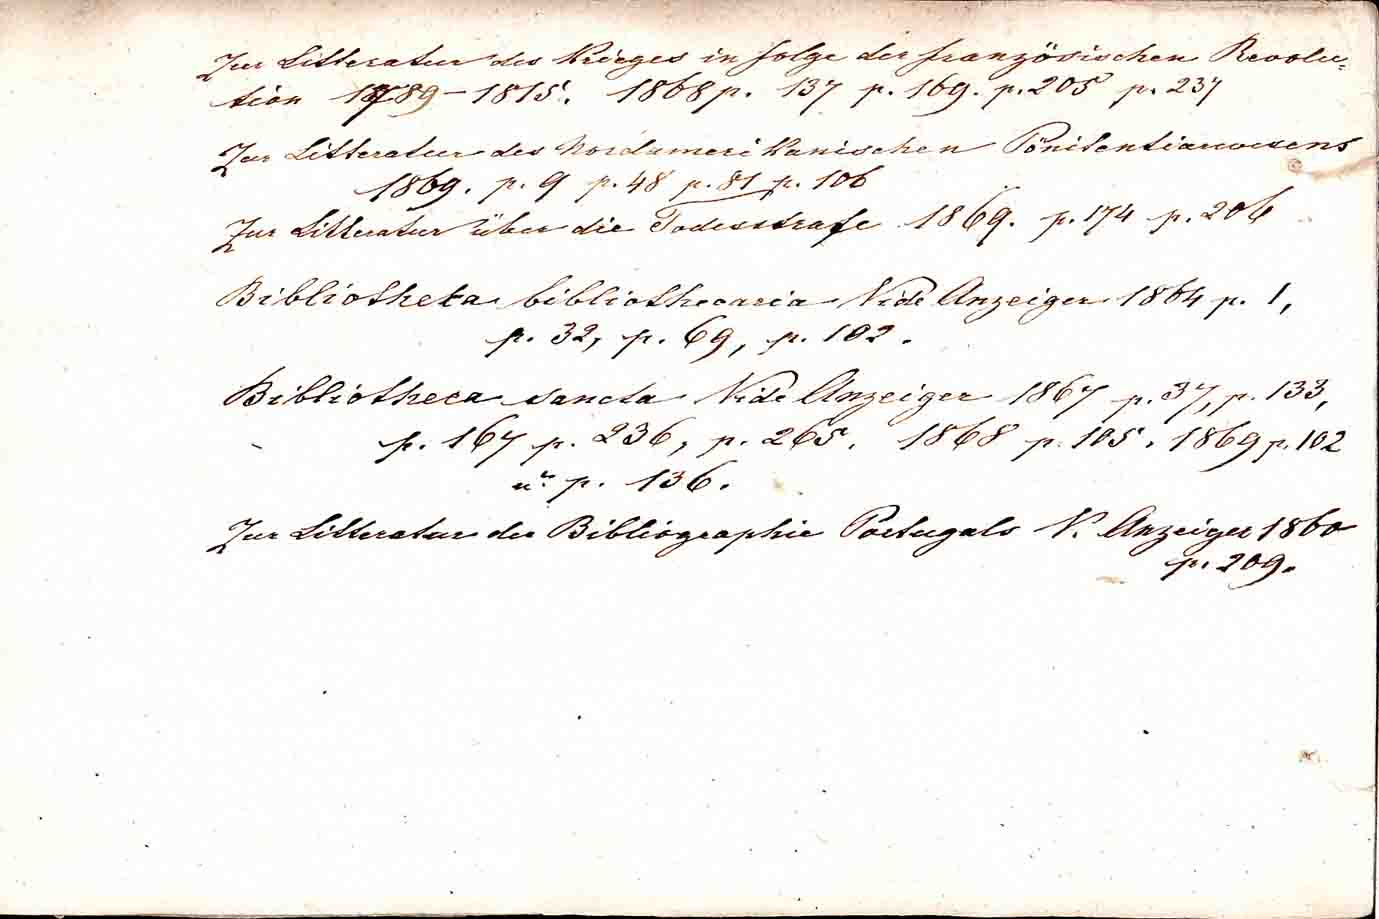 Zur Litteratur des Krieges in folge der französischen Revolu=
tion 1789–1815. 1868 p. 137 p. 169. p. 205 p. 237
Zur Litteratur des Nordamerikanischen Pönitentiarwesens
1869. p. 9 p. 48 p. 81 p. 106
Zur Litteratur über die Todesstrafe 1869. p. 174 p. 206
Bibliotheka bibliothecaria Vide Anzeiger 1864 p. 1,
p. 32, p. 69, p. 102.
Bibliotheca sancta Vide Anzeiger 1867 p. 37, p. 133,
p. 167 p. 236, p. 265. 1868 p. 105. 1869 p. 102
u. p. 136.
Zur Litteratur der Bibliographie Portugals V. Anzeiger 1860
p. 209.